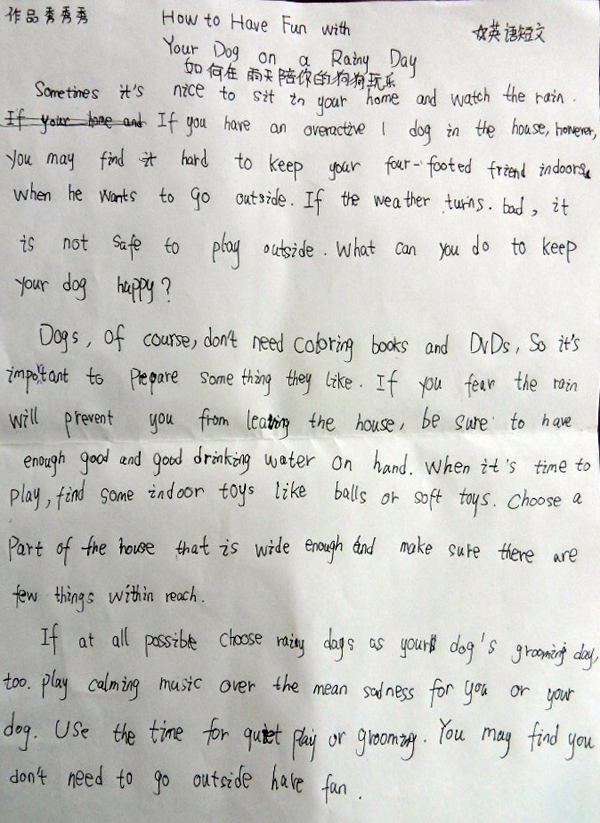 作品秀秀秀
How to Have Fun with
女英语短文
Your Dog on a Rainy Day
如何在雨天陪你的狗狗玩乐
Sometimes it's nice to sit in your home and watch the rain.
If your home and If you have an overactive l dog in the house, however,
you may find it hard to keep your four-footed friend indoors
when he wants to go outside. If the weather turns. bad, it
is not safe to play outside. What can you do to keep
your dog happy?
Dogs, of course, don't need coloring books and DVDs, So it's
important to prepare something they like. If you fear the rain
will prevent you from leaving the house, be sure to have
enough good and good drinking water on hand. When it's time to
play, find some indoor toys like balls or soft toys. Choose a
part of the house that is wide enough and make sure there are
few things within reach.
If at all possible choose rainy dags as your dog's grooming day,
too. play calming music over the mean sadness for you or your
dog. Use the time for quiet play or grooming. You may find you
don't need to go outside have fan.